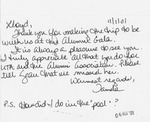 Lloyd, 11/1/01
Thank you for making the trip to be
with us at the Alumni Gala.
It is always a pleasure to see you
I truly appreciate all that you do for
UTA and the Alumni Association. Please
tell Jean that we missed her.
Warmest regards,
P.S. How did I do in the pool?